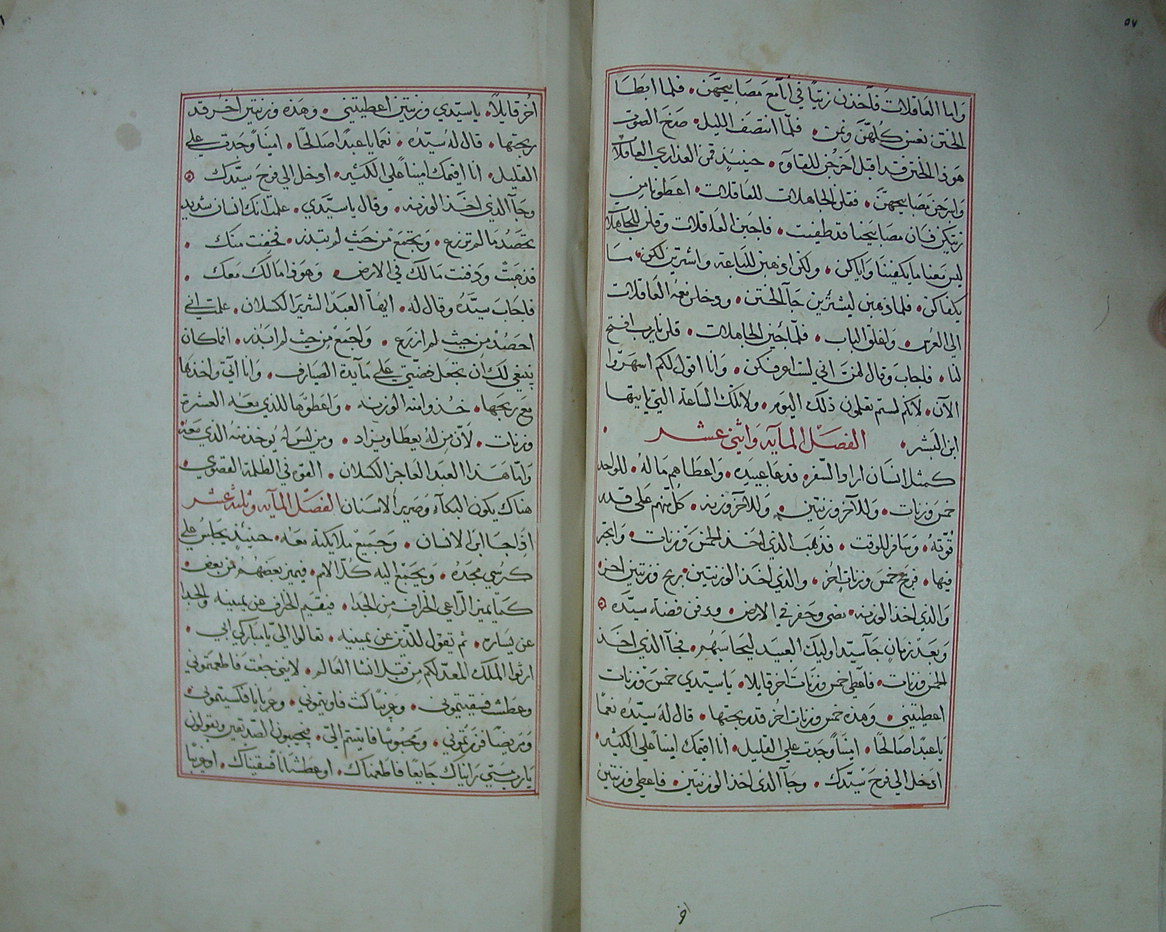 ٥٧
واما العاقلات فاخذن زيتا في انآ مع مصابيحهن • فلما ابطا
الختن نعسن كلهن ونمن • فلما انتصف الليل • صرخ الصوت
هوذا الختن قد اقبل اخرجن للقاه • حينيذ قمن العذارى العاقلات
واسرجن مصابيحهن • فقلن الجاهلات للعاقلات • اعطونا من
زيتكن فان مصابيحنا قد طفيت • فاجبن العاقلات وقلن للجاهلات
ليس معنا ما يكفينا واياكن • ولكن اذهبن للباعة واشترين لكن • ما
يكفاكن • فلما ذهبن ليشترين جآ الختن • ودخلن معه العاقلات
الى العرس • واغلق الباب • فلما جين الجاهلات • قلن يارب افتح
لنا • فاجاب وقال لهن اني لست اعرفكن • وانا اقول لكم اسهروا
الآن • لانكم لستم تعلمون ذلك اليوم • ولا تلك الساعة التي ياتيها
ابن البشر • الفصل المايه واثني عشر •
كمثل انسان اراد السفر • فدعا عبيده • واعطاهم ماله • للواحد
خمس وزنات • وللآخر وزنتين • وللآخر وزنه • كل منهم على قدر
قوته • وسافر للوقت • فذهب الذي اخذ الخمس وزنات • واتجر
فيها • فربح خمس وزنات اخر • والذي اخذ الوزنتين ربح وزنتين اخر •
والذي اخذ الوزنه • مضى وحفر في الارض • ودفن فضة سيده
وبعد زمان جآ سيد اوليك العبيد ليحاسبهم • فجآ الذي اخذ
الخمس وزنات • فاعطى خمس وزنات اخر قايلا • يا سيدي خمس وزنات
اعطيتني • وهذه خمس وزنات اخر قد ربحتها • قال له سيده نعما
يا عبدا صالحا • امينا وجدت علي القليل • انا اقيمك امينا على الكثير •
ادخل الى فرح سيدك • وجآ الذي اخذ الوزنتين • فاعطي وزنتين
اخر قايلا • يا سيدي وزنتين اعطيتني • وهذه وزنتين اخر قد
ربحتها • قال له سيده • نعما يا عبدا صالحا • امينا وجدت علي
القليل • انا اقيمك امينا علي الكثير • ادخل الي فرح سيدك
وجآ الذي اخذ الوزنه • وقال يا سيدي • علمت انك انسان شديد
تحصد ما لم تزرع • وتجمع من حيث لم تبذر • فخفت منك •
فذهبت ودفنت مالك في الارض • وهوذا مالك معك •
فاجاب سيده وقال له • ايها العبد الشرير الكسلان • علمت اني
احصد من حيث لم ازرع • واجمع من حيث لم ابذر • افما كان
ينبغي لك ان تجعل فضتي علي مآيدة الصيارف • وانا آتي واخذها
مع ربحها • خذوا منه الوزنه • واعطوها للذي معه العشرة
وزنات • لان من له يعطا ويزاد • ومن ليس له يوخذ منه الذي معه
واما هذا العبد العاجز الكسلان • القوه في الظلمة القصوى •
هناك يكون البكآء وصرير الاسنان الفصل المايه وثلثه عشر
اذا جا ابن الانسان • وجميع ملايكته معه • حينيذ يجلس علي
كرسي مجده • ويجتمع اليه كل الامم • فيميز بعضهم من بعض •
كما يميز الراعي الخراف من الجدا • فيقيم الخراف عن يمينه والجدا
عن يساره • ثم يقول للذين عن يمينه • تعالوا الي يا مباركي ابي •
ارثوا الملك المعد لكم من قبل انشا العالم • لاني جعت فاطعمتموني
وعطشت فسقيتموني • وغريبا كنت فاويتموني • وعريانا فكسيتموني •
ومريضا فزرتموني • ومحبوسا فاتيتم الي • فيجيبون الصديقين ويقولون
يا رب متى رايناك جايعا فاطعمناك • او عطشانا فسقيناك • او غريبا